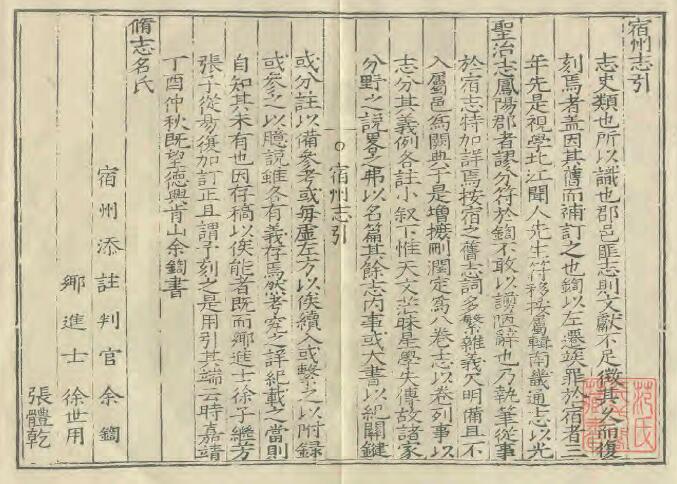 宿州志引
志史類也所以識也郡邑匪志則文獻不足徵其久而復
刻焉者蓋因其舊而補訂之也鍧以左遷竢罪於宿者三
年先是視學北江聞人先生符移按屬輯南畿通志以光
聖治志鳳陽郡者謬分符於鍧不敢以譾陋辭也乃執筆從事
於宿志特加詳焉按宿之舊志詞多繁雜義欠明備且不
入屬邑為闕典于是增撫刪潤定為八卷志以卷列事以
志分其義例各註小叙下惟天文茫昧星學失傳故諸家
分野之說畧之弗以名篇其餘志內事或大書以紀關鍵
○宿州志引
或分註以備參考或每虛左方以俟續入或繫之以附録
或參之以臆說雖各有義存焉然考究之詳紀載之當則
自知其未有也因存稿以俟能者既而鄉進士徐子繼方
張子從易復加訂正且謂予刻之是用引其端云時嘉靖
丁酉仲秋既望德興肯山余鍧書
脩志名氏
宿州添註判官余鍧
鄉進士徐世用
張體乾
范氏天一閣藏書